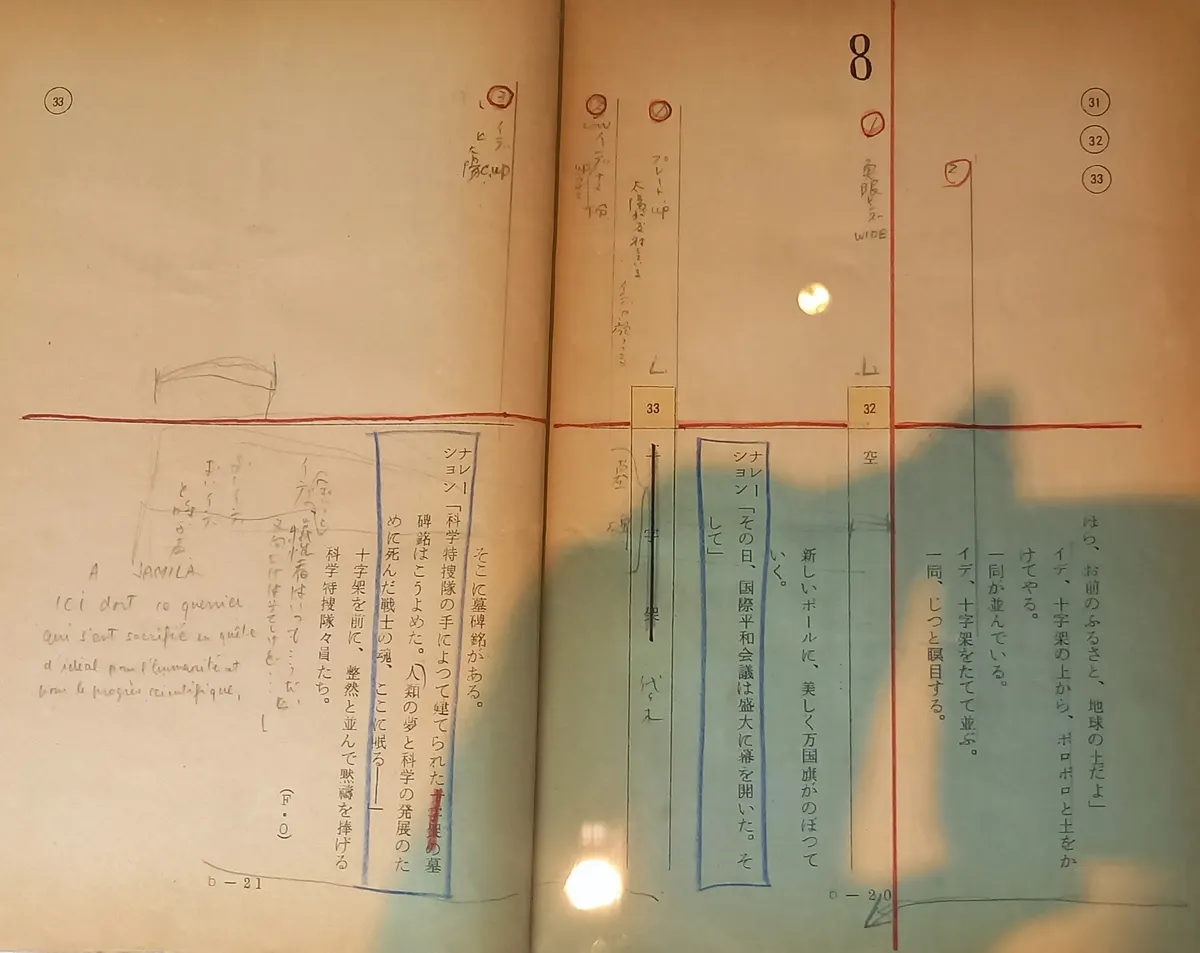 8
31
32
33
ほら、お前のふるさと、地球の土だよ」
イデ、十字架の上から、ボロボロと土をか
けてやる。
一同が並んでいる。
イデ、十字架をたてて並ぶ。
一同、じっと瞑目する。
2
1
WIDE
32
空
新しいポールに、美しく万国旗がのぼつて
いく。
ナレーション「その日、国際平和会議は盛大に幕を開いた。そ
して」
1
プレート up
33
十字架
b-20
3
イデ up
そこに墓碑銘がある。
ナレーション「科学特捜隊の手によつて建てられた十字架の墓
碑銘はこうよめた。人類の夢と科学の発展のた
めに死んだ戦士の魂、ここに眠る――」
十字架を前に、整然と並んで黙禱を捧げる
科学特捜隊々員たち。
イデ「犠牲者はいつもこうだ、
(F・O)
33
A JAMILA
Ici dort ce guerrier
qui s'est sacrifié en quête
d'idéal pour l'humanité et
pour le progrès scientifique,
b-21